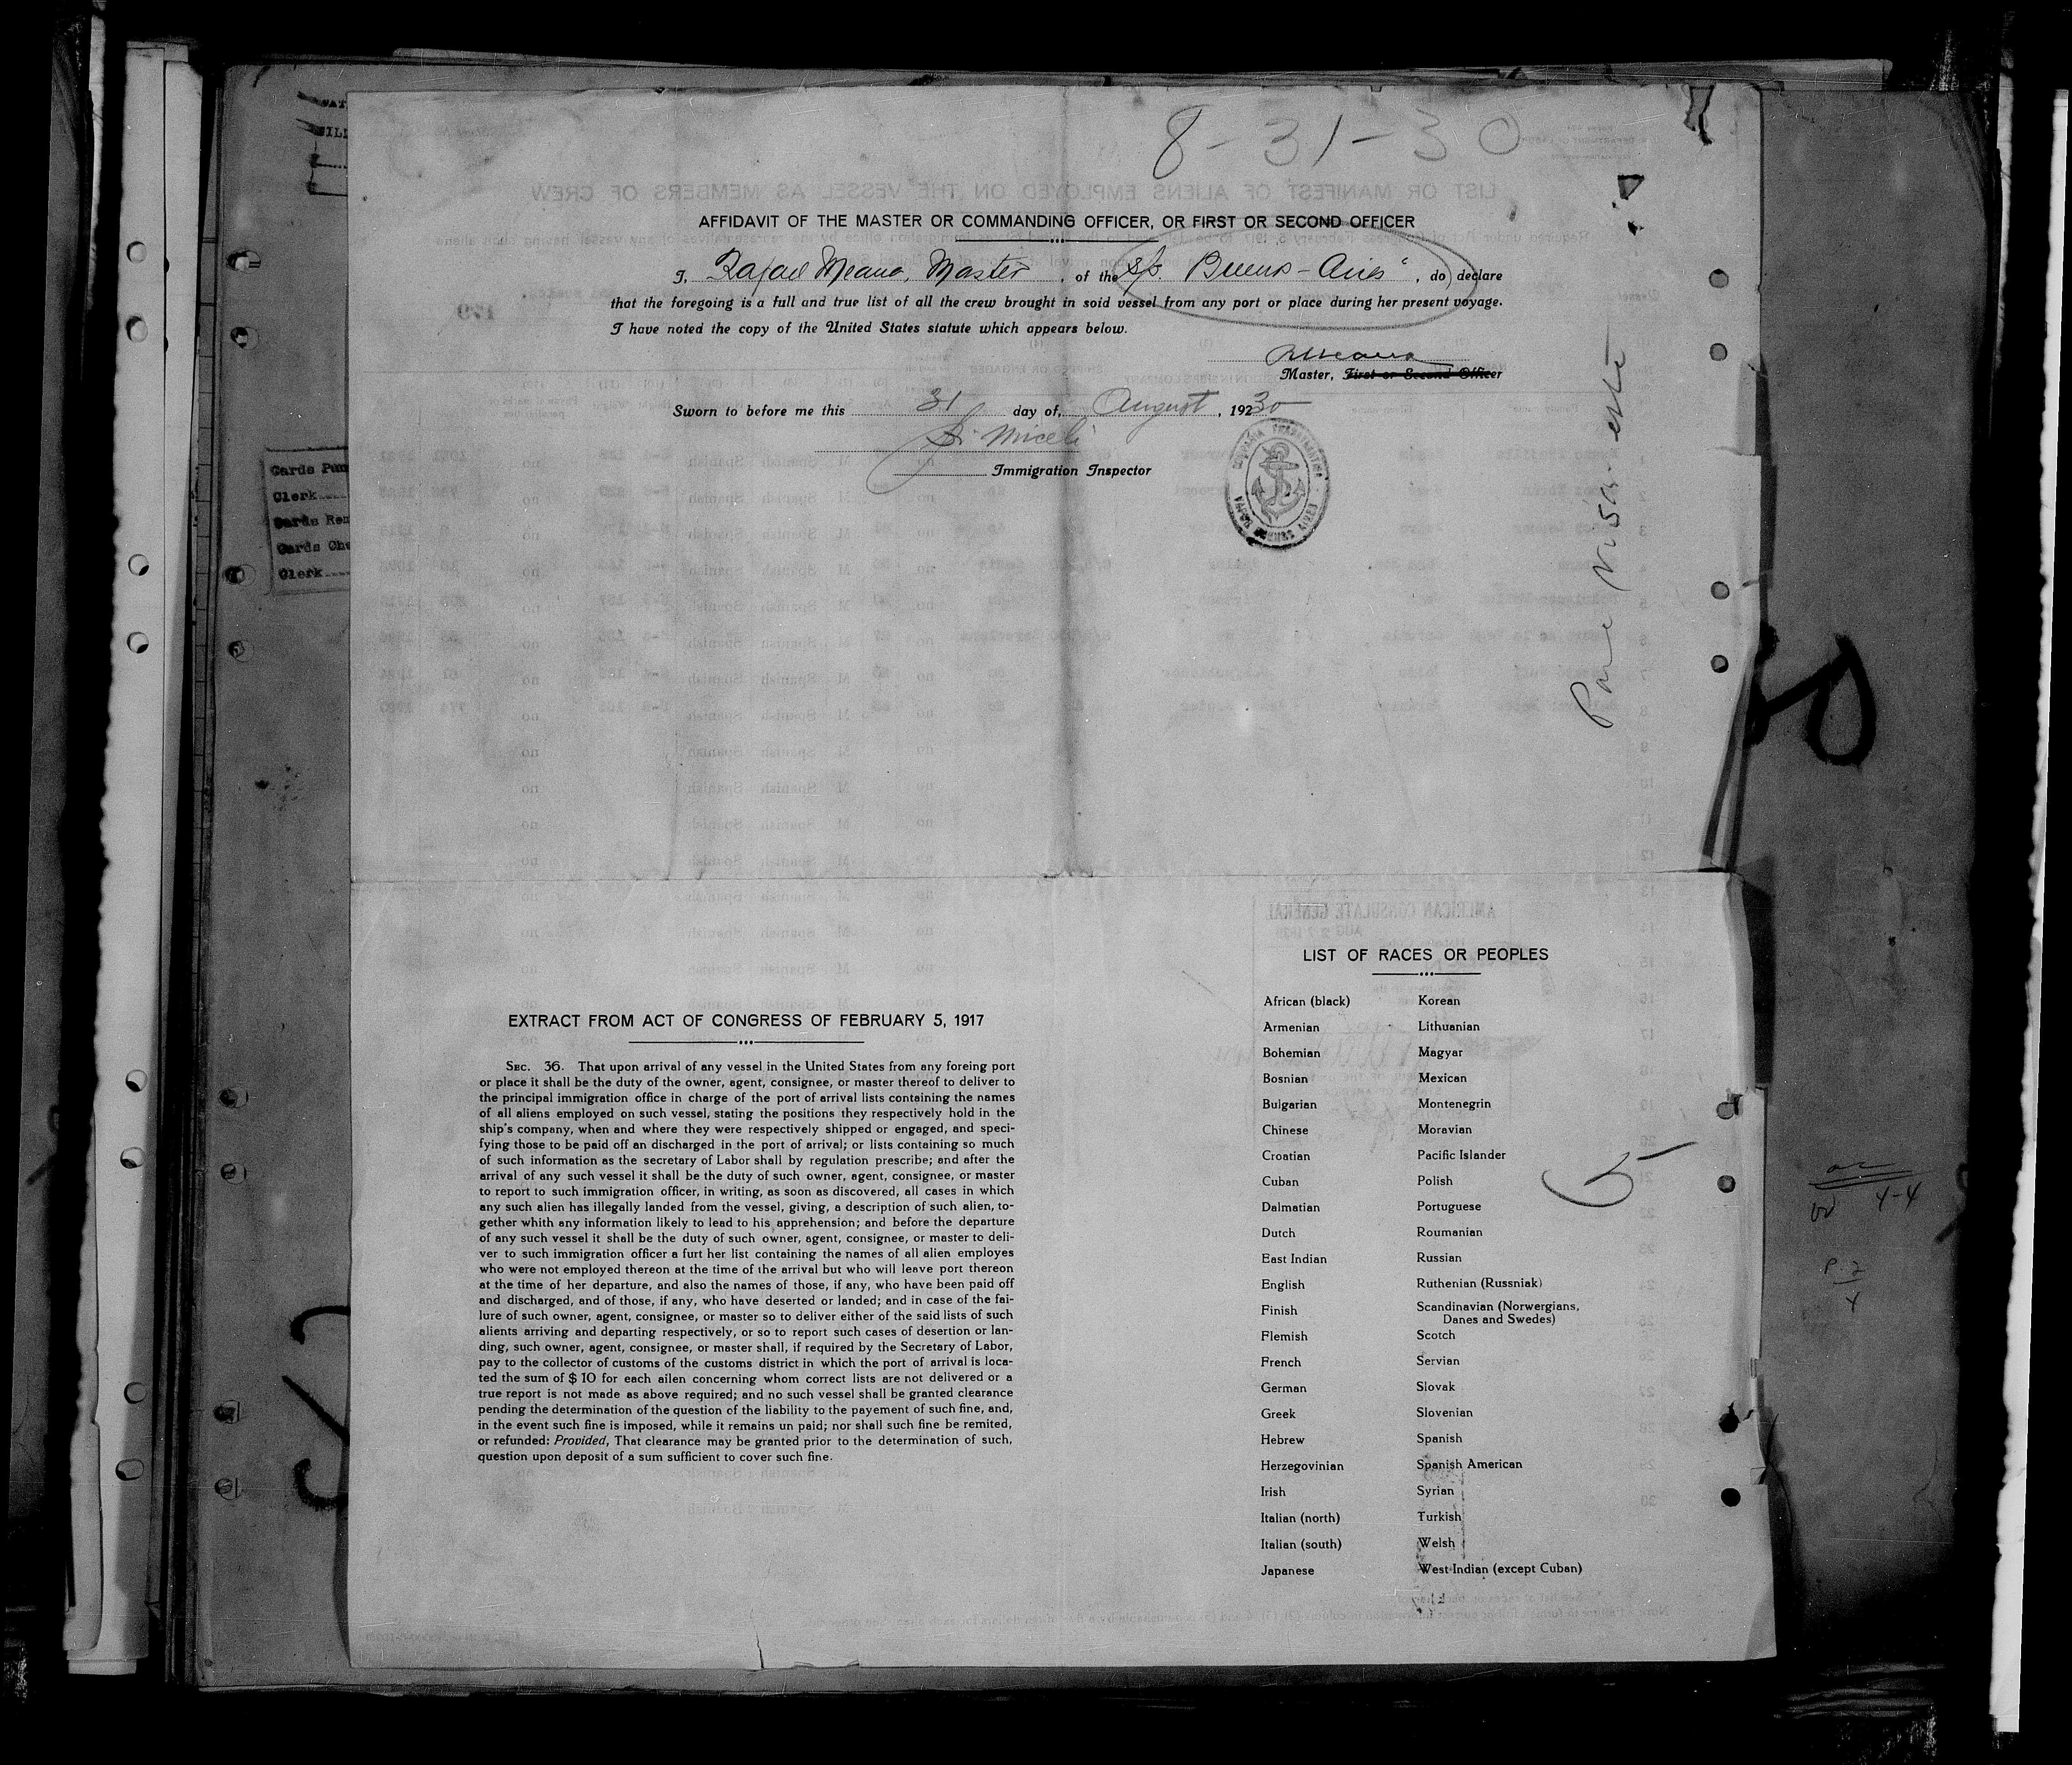 8-31-30
AFFIDAVIT OF THE MASTER OR COMMANDING OFFICER, OR FIRST OR SECOND OFFICER
I, Rafael Meana, Master, of the S/s. "Buenos-Aires", do declare
that the foregoing is a full and true list of all the crew brought in soid vessel from any port or place during her present voyage.
I have noted the copy of the United States statute which appears below.
RMeana
Master, First or Second Officer
Sworn to before me this 31 day of, August, 19230
Miceli
Immigration Inspector
VAPOR BUENOS AIRES
Para visar este
Cards Pun
Clerk
Cards Rem
Cards Che
Clerk
LIST OF RACES OR PEOPLES
African (black) Korean
Armenian Lithuanian
Bohemian Magyar
Bosnian Mexican
Bulgarian Montenegrin
Chinese Moravian
Croatian Pacific Islander
Cuban Polish
Dalmatian Portuguese
Dutch Roumanian
East Indian Russian
English Ruthenian (Russniak)
Finish Scandinavian (Norwergians,
Danes and Swedes)
Flemish Scotch
French Servian
German Slovak
Greek Slovenian
Hebrew Spanish
Herzegovinian Spanish American
Irish Syrian
Italian (north) Turkish
Italian (south) Welsh
Japanese West Indian (except Cuban)
5
EXTRACT FROM ACT OF CONGRESS OF FEBRUARY 5, 1917
SEC. 36. That upon arrival of any vessel in the United States from any foreing port
or place it shall be the duty of the owner, agent, consignee, or master thereof to deliver to
the principal immigration office in charge of the port of arrival lists containing the names
of all aliens employed on such vessel, stating the positions they respectively hold in the
ship's company, when and where they were respectively shipped or engaged, and speci-
fying those to be paid off an discharged in the port of arrival; or lists containing so much
of such information as the secretary of Labor shall by regulation prescribe; and after the
arrival of any such vessel it shall be the duty of such owner, agent, consignee, or master
to report to such immigration officer, in writing, as soon as discovered, all cases in which
any such alien has illegally landed from the vessel, giving, a description of such alien, to-
gether whith any information likely to lead to his apprehension; and before the departure
of any such vessel it shall be the duty of such owner, agent, consignee, or master to deli-
ver to such immigration officer a furt her list containing the names of all alien employes
who were not employed thereon at the time of the arrival but who will leave port thereon
at the time of her departure, and also the names of those, if any, who have been paid off
and discharged, and of those, if any, who have deserted or landed; and in case of the fai-
lure of such owner, agent, consignee, or master so to deliver either of the said lists of such
alients arriving and departing respectively, or so to report such cases of desertion or lan-
ding, such owner, agent, consignee, or master shall, if required by the Secretary of Labor,
pay to the collector of customs of the customs district in which the port of arrival is loca-
ted the sum of $ 10 for each ailen concerning whom correct lists are not delivered or a
true report is not made as above required; and no such vessel shall be granted clearance
pending the determination of the question of the liability to the payement of such fine, and,
in the event such fine is imposed, while it remains un paid; nor shall such fine be remited,
or refunded: Provided, That clearance may be granted prior to the determination of such,
question upon deposit of a sum sufficient to cover such fine.
4-4